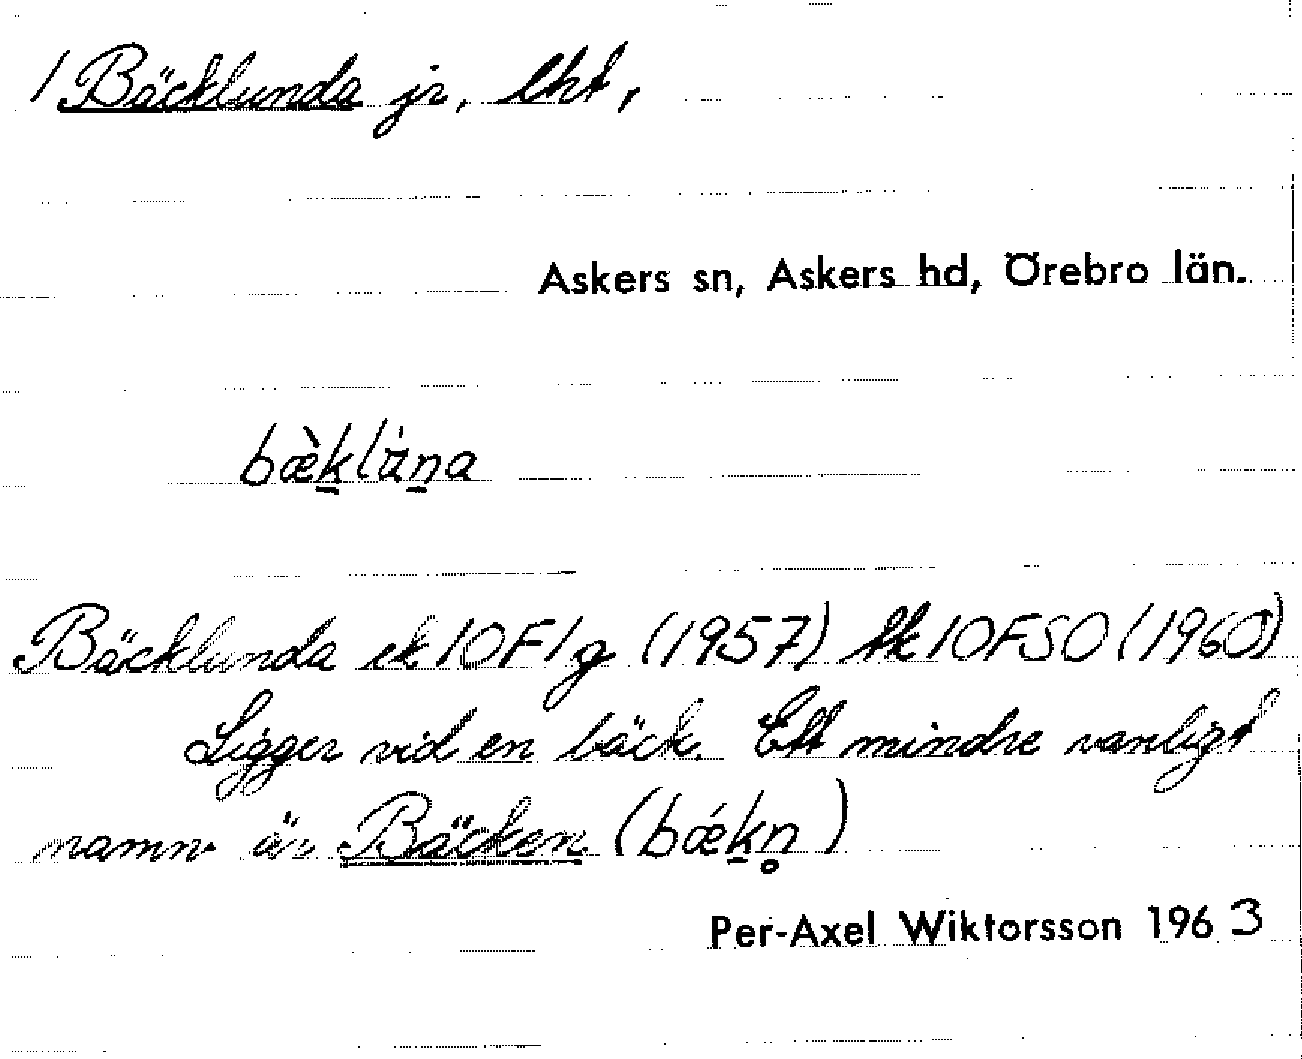 / Bäcklunda jr, lht,
Askers sn, Askers hd, Örebro län.
bæ̀k̲lȧ̀n̲a
Bäcklunda ek 10F1g (1957) fk 10FSO (1960)
Ligger vid en bäck. Ett mindre vanligt
namn är Bäcken (bǽk̲n̥)
Per-Axel Wiktorsson 1963